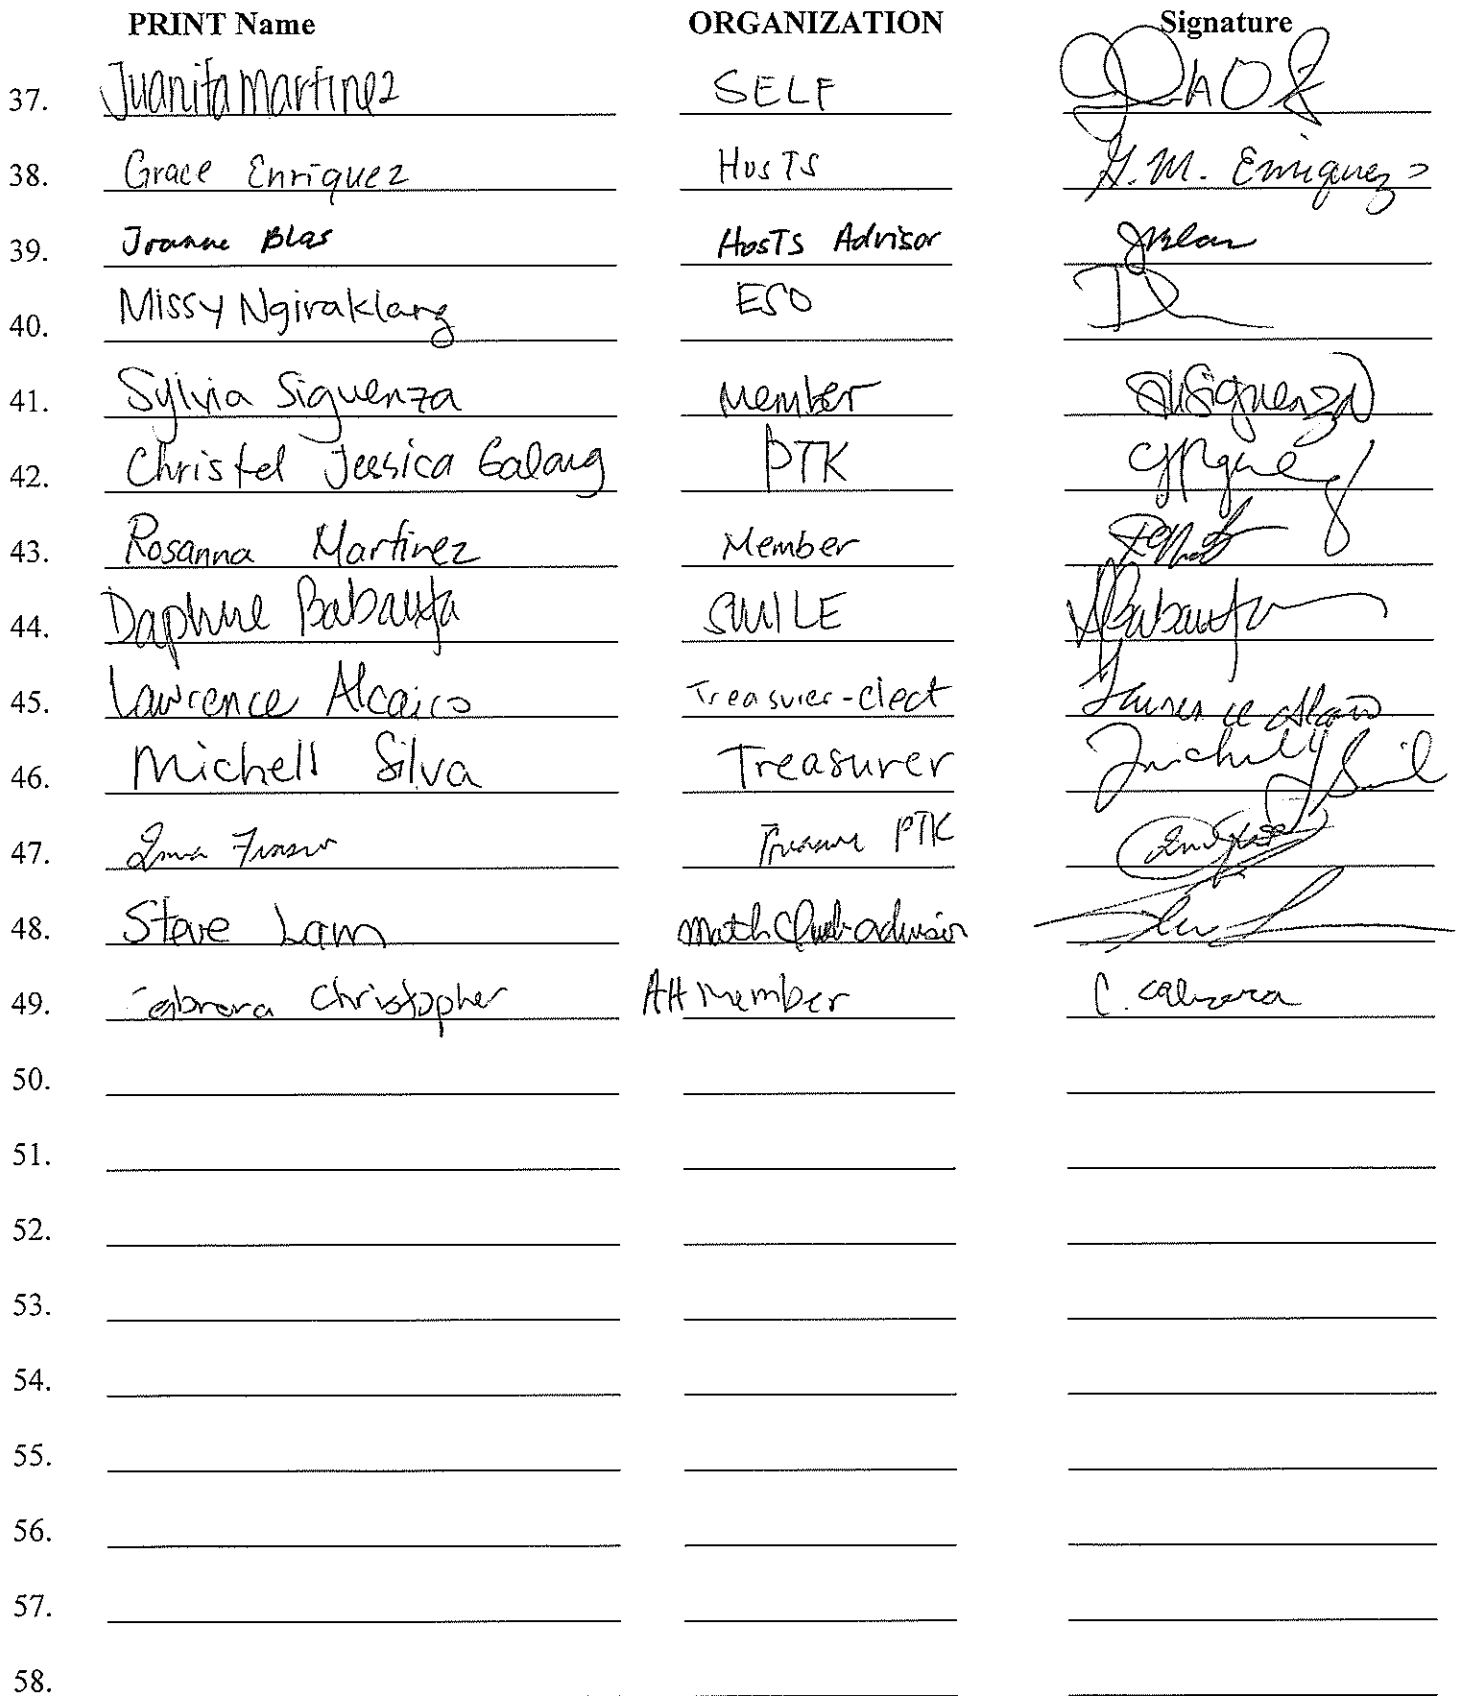 PRINT Name ORGANIZATION Signature
37. Juanita Martinez SELF
38. Grace Enriquez HosTs G.M. Enriquez
39. Joanne Blas HosTs Advisor JBlas
40. Missy Ngiraklang ESO
41. Sylvia Siguenza Member SSiguenza
42. Christel Jessica Galang PTK
43. Rosanna Martinez Member
44. Daphne Babauta SMILE DBabauta
45. Lawrence Alcairo Treasurer-elect
46. Michell Silva Treasurer
47. PTK
48. Steve Lam Math Club advisor
49. Cabrera Christopher AH member C. Cabrera
50.
51.
52.
53.
54.
55.
56.
57.
58.